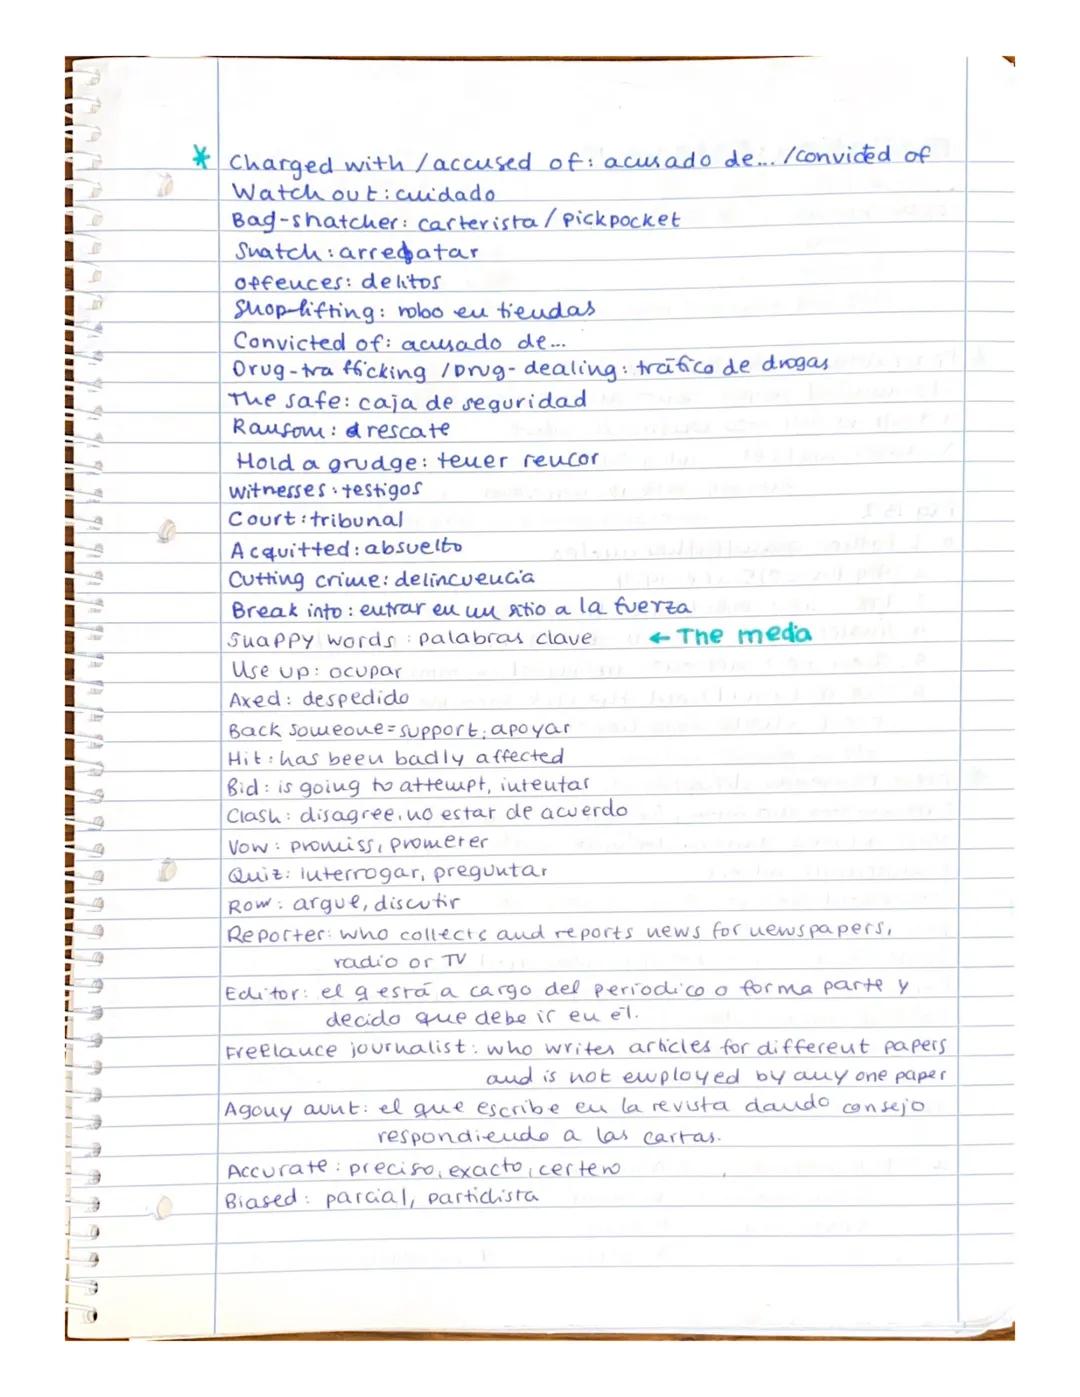 * Charged with / accused of: acusado de... /convicted of
Watch out: cuidado
Bag-snatcher: carterista / Pickpocket
Snatch: arrebatar
offences: delitos
Shop-lifting: robo en tiendas
Convicted of: acusado de...
Drug-trafficking / Drug-dealing: tráfico de drogas
The safe: caja de seguridad
Ransom: rescate
Hold a grudge: tener rencor
witnesses: testigos
Court: tribunal
Acquitted: absuelto
Cutting crime: delincuencia
Break into: entrar en un sitio a la fuerza
Snappy words: palabras clave ← The media
Use up: ocupar
Axed: despedido
Back someone = support, apoyar
Hit: has been badly affected
Bid: is going to attempt, intentar
Clash: disagree, no estar de acuerdo
Vow: promiss, prometer
Quiz: interrogar, preguntar
Row: argue, discutir
Reporter: who collects and reports news for newspapers,
radio or TV
Editor: el q está a cargo del periodico o forma parte y
decido que debe ir en él.
Freelance journalist: who writes articles for different papers
and is not employed by any one paper
Agony aunt: el que escribe en la revista dando consejo
respondiendo a las cartas.
Accurate: preciso, exacto, certero
Biased: parcial, partidista